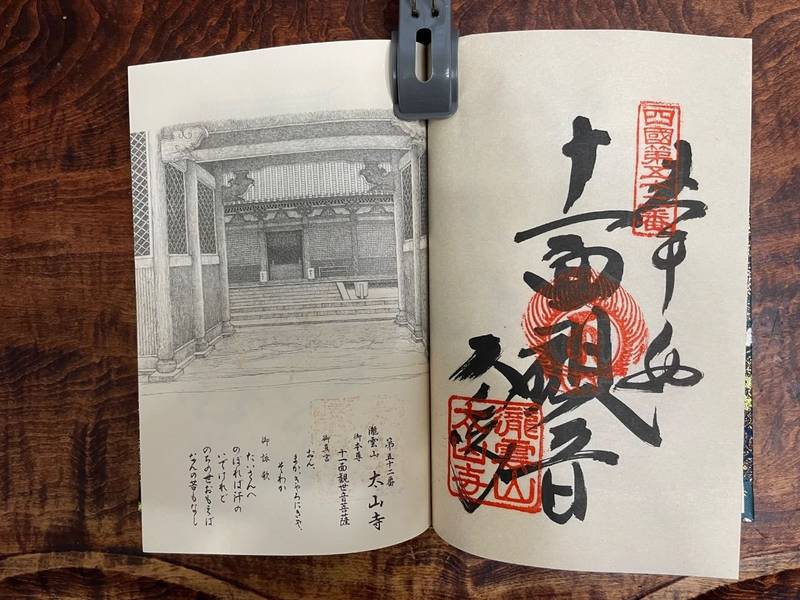 四國第五十二番
奉納
十一面観音
太山寺
瀧雲山
太山寺
第五十二番
瀧雲山 太山寺
御本尊
十一面観世音菩薩
御真言
おん、
まかきゃろにきゃ、
そわか
御詠歌
たいさんへ
のぼれば汗の
いでけれど
のちの世おもえば
なんの苦もなし